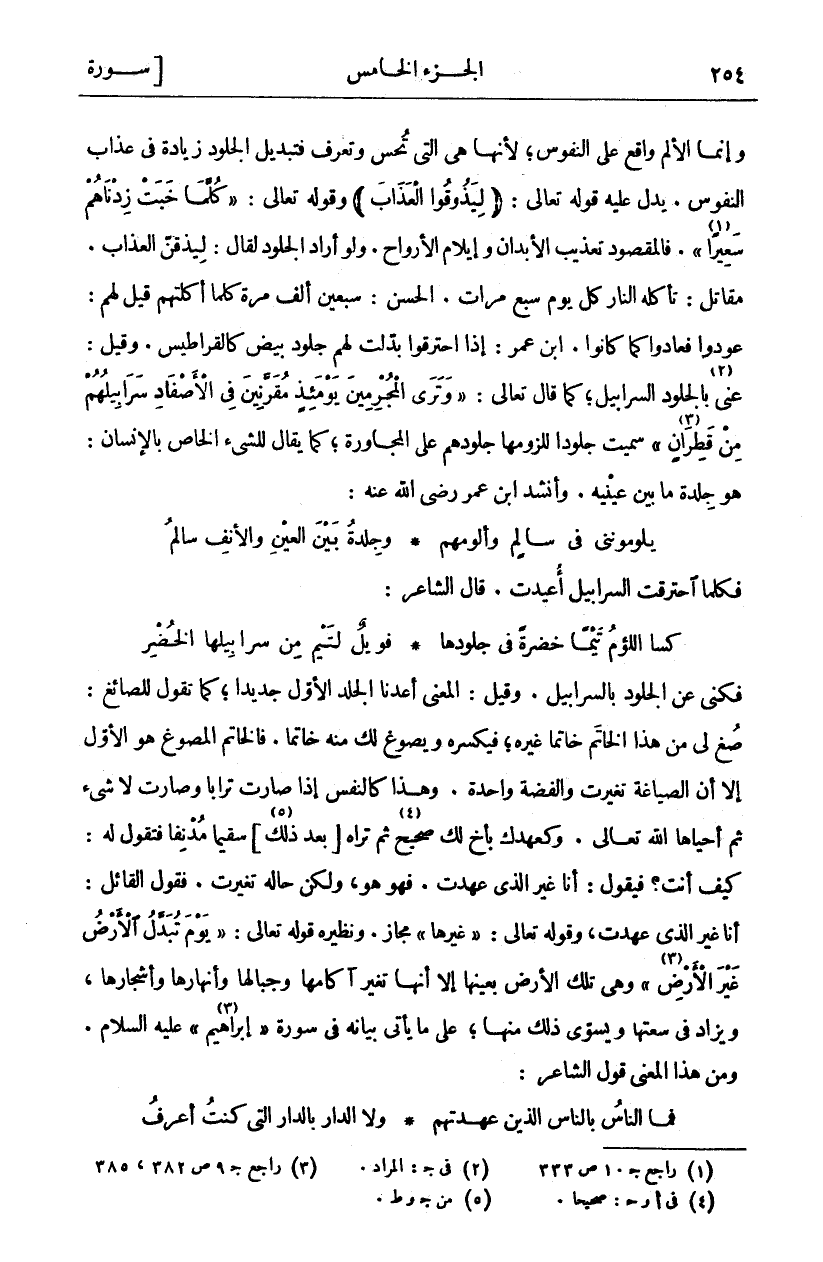 ٢٥٤ الجزء الخامس [ سورة
وإنما الألم واقع على النفوس؛ لأنها هى التى تُحس وتعرف فتبديل الجلود زيادة فى عذاب
النفوس . يدل عليه قوله تعالى : ﴿ لِيَذُوقُوا الْعَذَابَ ﴾ وقوله تعالى : « كُلَّمَا خَبَتْ زِدْنَاهُمْ
سَعِيرًا (١) » . فالمقصود تعذيب الأبدان وإيلام الأرواح . ولو أراد الجلود لقال : ليذقنّ العذاب .
مقاتل : تأكله النار كل يوم سبع مرات . الحسن : سبعين ألف مرة كلما أكلتهم قيل لهم :
عودوا فعادوا كما كانوا . ابن عمر : إذا احترقوا بدّلت لهم جلود بيض كالقراطيس . وقيل :
عنى (٢) بالجلود السرابيل؛ كما قال تعالى : « وَتَرَى الْمُجْرِمِينَ يَوْمَئِذٍ مُقَرَّنِينَ فِى الْأَصْفَادِ سَرَابِيلُهُمْ
مِنْ قَطِرَانٍ (٣) » سميت جلودا للزومها جلودهم على المجاورة ؛ كما يقال للشىء الخاص بالإنسان :
هو جِلدة ما بين عيْنيه . وأنشد ابن عمر رضى الله عنه :
يلوموننى فى سالِم وألومهم * وجِلدةُ بَيْنَ العيْنِ والأنفِ سالمُ
فكلما آحترقت السرابيل أُعيدت . قال الشاعر :
كسا اللؤمُ تَيْمًا خضرةً فى جلودها * فويلٌ لتَيْم مِن سرابِيلها الخُضْرِ
فكنى عن الجلود بالسرابيل . وقيل : المعنى أعدنا الجلد الأوّل جديدا ؛ كما تقول للصائغ :
صُغ لى من هذا الخاتَم خاتما غيره؛ فيكسره ويصوغ لك منه خاتما . فالخاتم المصوغ هو الأوّل
إلا أن الصياغة تغيرت والفضة واحدة . وهذا كالنفس إذا صارت ترابا وصارت لا شىء
ثم أحياها الله تعالى . وكعهدك بأخ لك صحيح (٤) ثم تراه [ بعد ذلك (٥) ] سقيما مُدْنِفا فتقول له :
كيف أنت؟ فيقول : أنا غير الذى عهدت . فهو هو، ولكن حاله تغيرت . فقول القائل :
أنا غير الذى عهدت، وقوله تعالى : « غيرها » مجاز . ونظيره قوله تعالى : « يَوْمَ تُبَدَّلُ الْأَرْضُ
غَيْرَ الْأَرْضِ (٣) » وهى تلك الأرض بعينها إلا أنها تغير آكامها وجبالها وأنهارها وأشجارها ،
ويزاد فى سعتها ويسوّى ذلك منها ؛ على ما يأتى بيانه فى سورة « إبراهيم (٣) » عليه السلام .
ومن هذا المعنى قول الشاعر :
فما الناسُ بالناس الذين عهدتهم * ولا الدار بالدار التى كنتُ أعرفُ
(١) راجع جـ ١٠ ص ٣٣٣ (٢) فى جـ : المراد . (٣) راجع جـ ٩ ص ٣٨٢ ، ٣٨٥
(٤) فى أ و حـ : صحيحا . (٥) من جـ و ط .